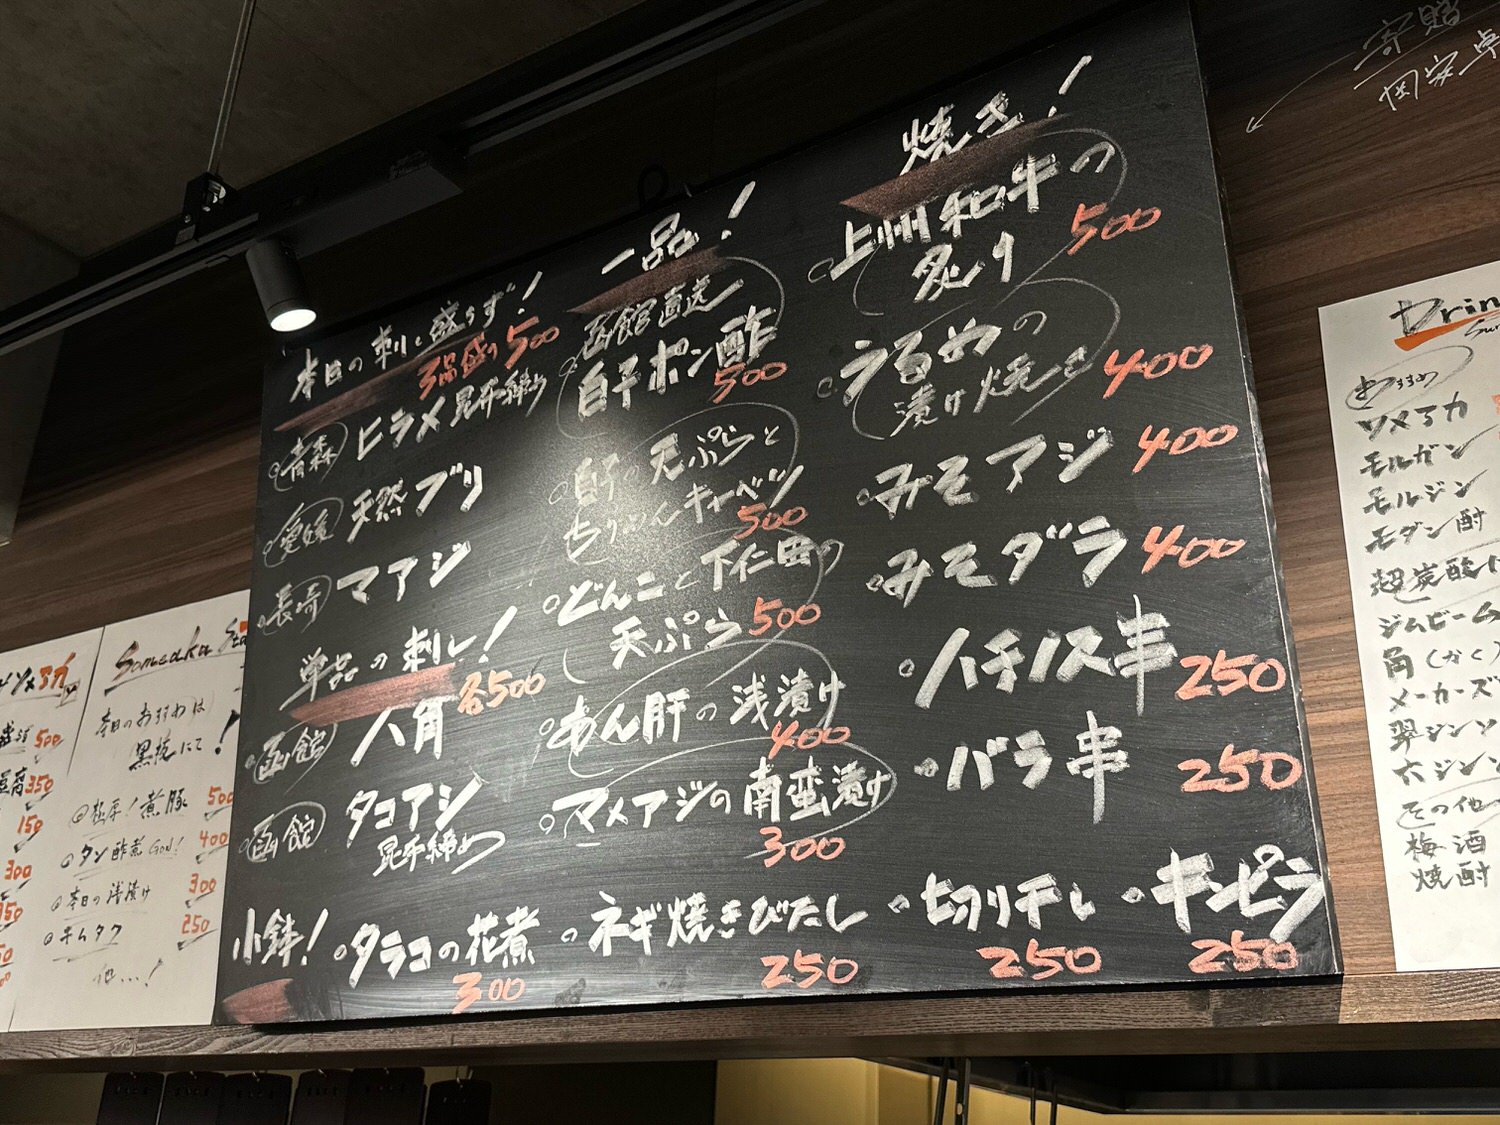 本日の刺し盛らず!
3品盛り500
青森 ヒラメ昆布締め
愛媛 天然ブリ
長崎 マアジ
単品の刺し!
各500
函館 八角
函館 タコアシ
昆布締め
一品!
函館直送
白子ポン酢
500
白子の天ぷらと
ちりめんキャベツ
500
どんこと下仁田の
天ぷら500
あん肝の浅漬け
400
マメアジの南蛮漬け
300
焼き!
上州和牛の
炙り 500
うるめの
漬け焼き 400
みそアジ 400
みそダラ 400
ハチノス串 250
バラ串 250
小鉢!
タラコの花煮
300
ネギ焼きびたし
250
切り干し
250
キンピラ
250
寄贈
岡安卓
500
350
150
300
本日のおすすめは
黒板にて!
極厚!煮豚 500
タン酢煮 God! 400
本日の浅漬け 300
キムタク 250
他…!
Drin
おすすめ
ソメアカ
モルガン
モルジン
モダン酎
超炭酸
ジムビーム
角(かく)
メーカーズ
翠ジンソ
六ジン
その他
梅酒
焼酎